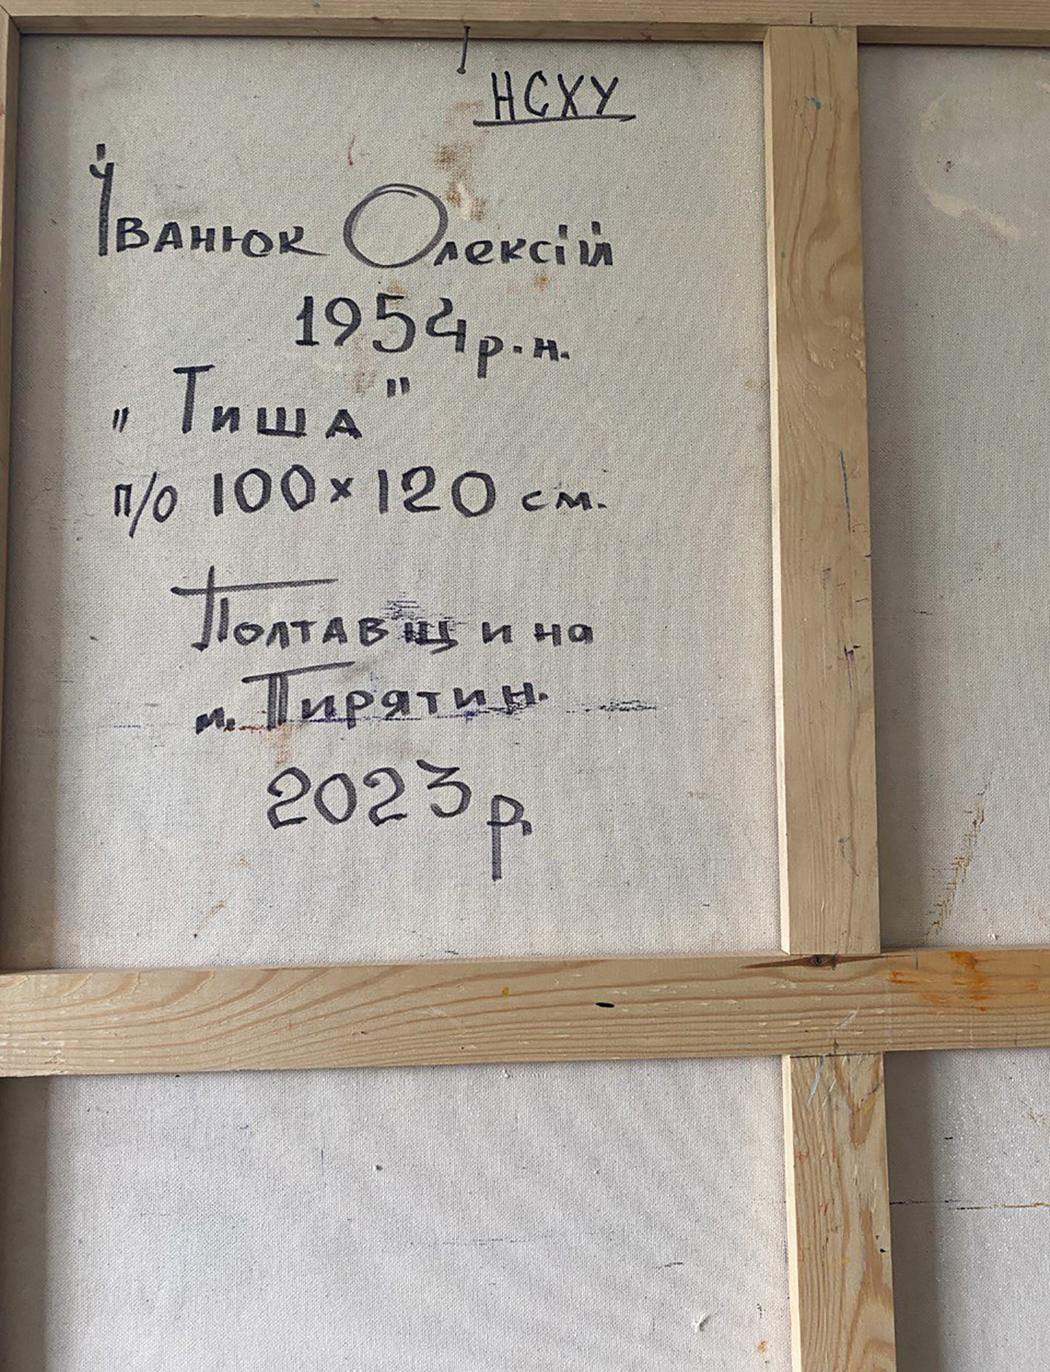 НСХУ
Іванюк Олексій
1954 р.н.
„Тиша"
п/о 100х120 см.
Полтавщина
м. Пирятин.
2023 р.